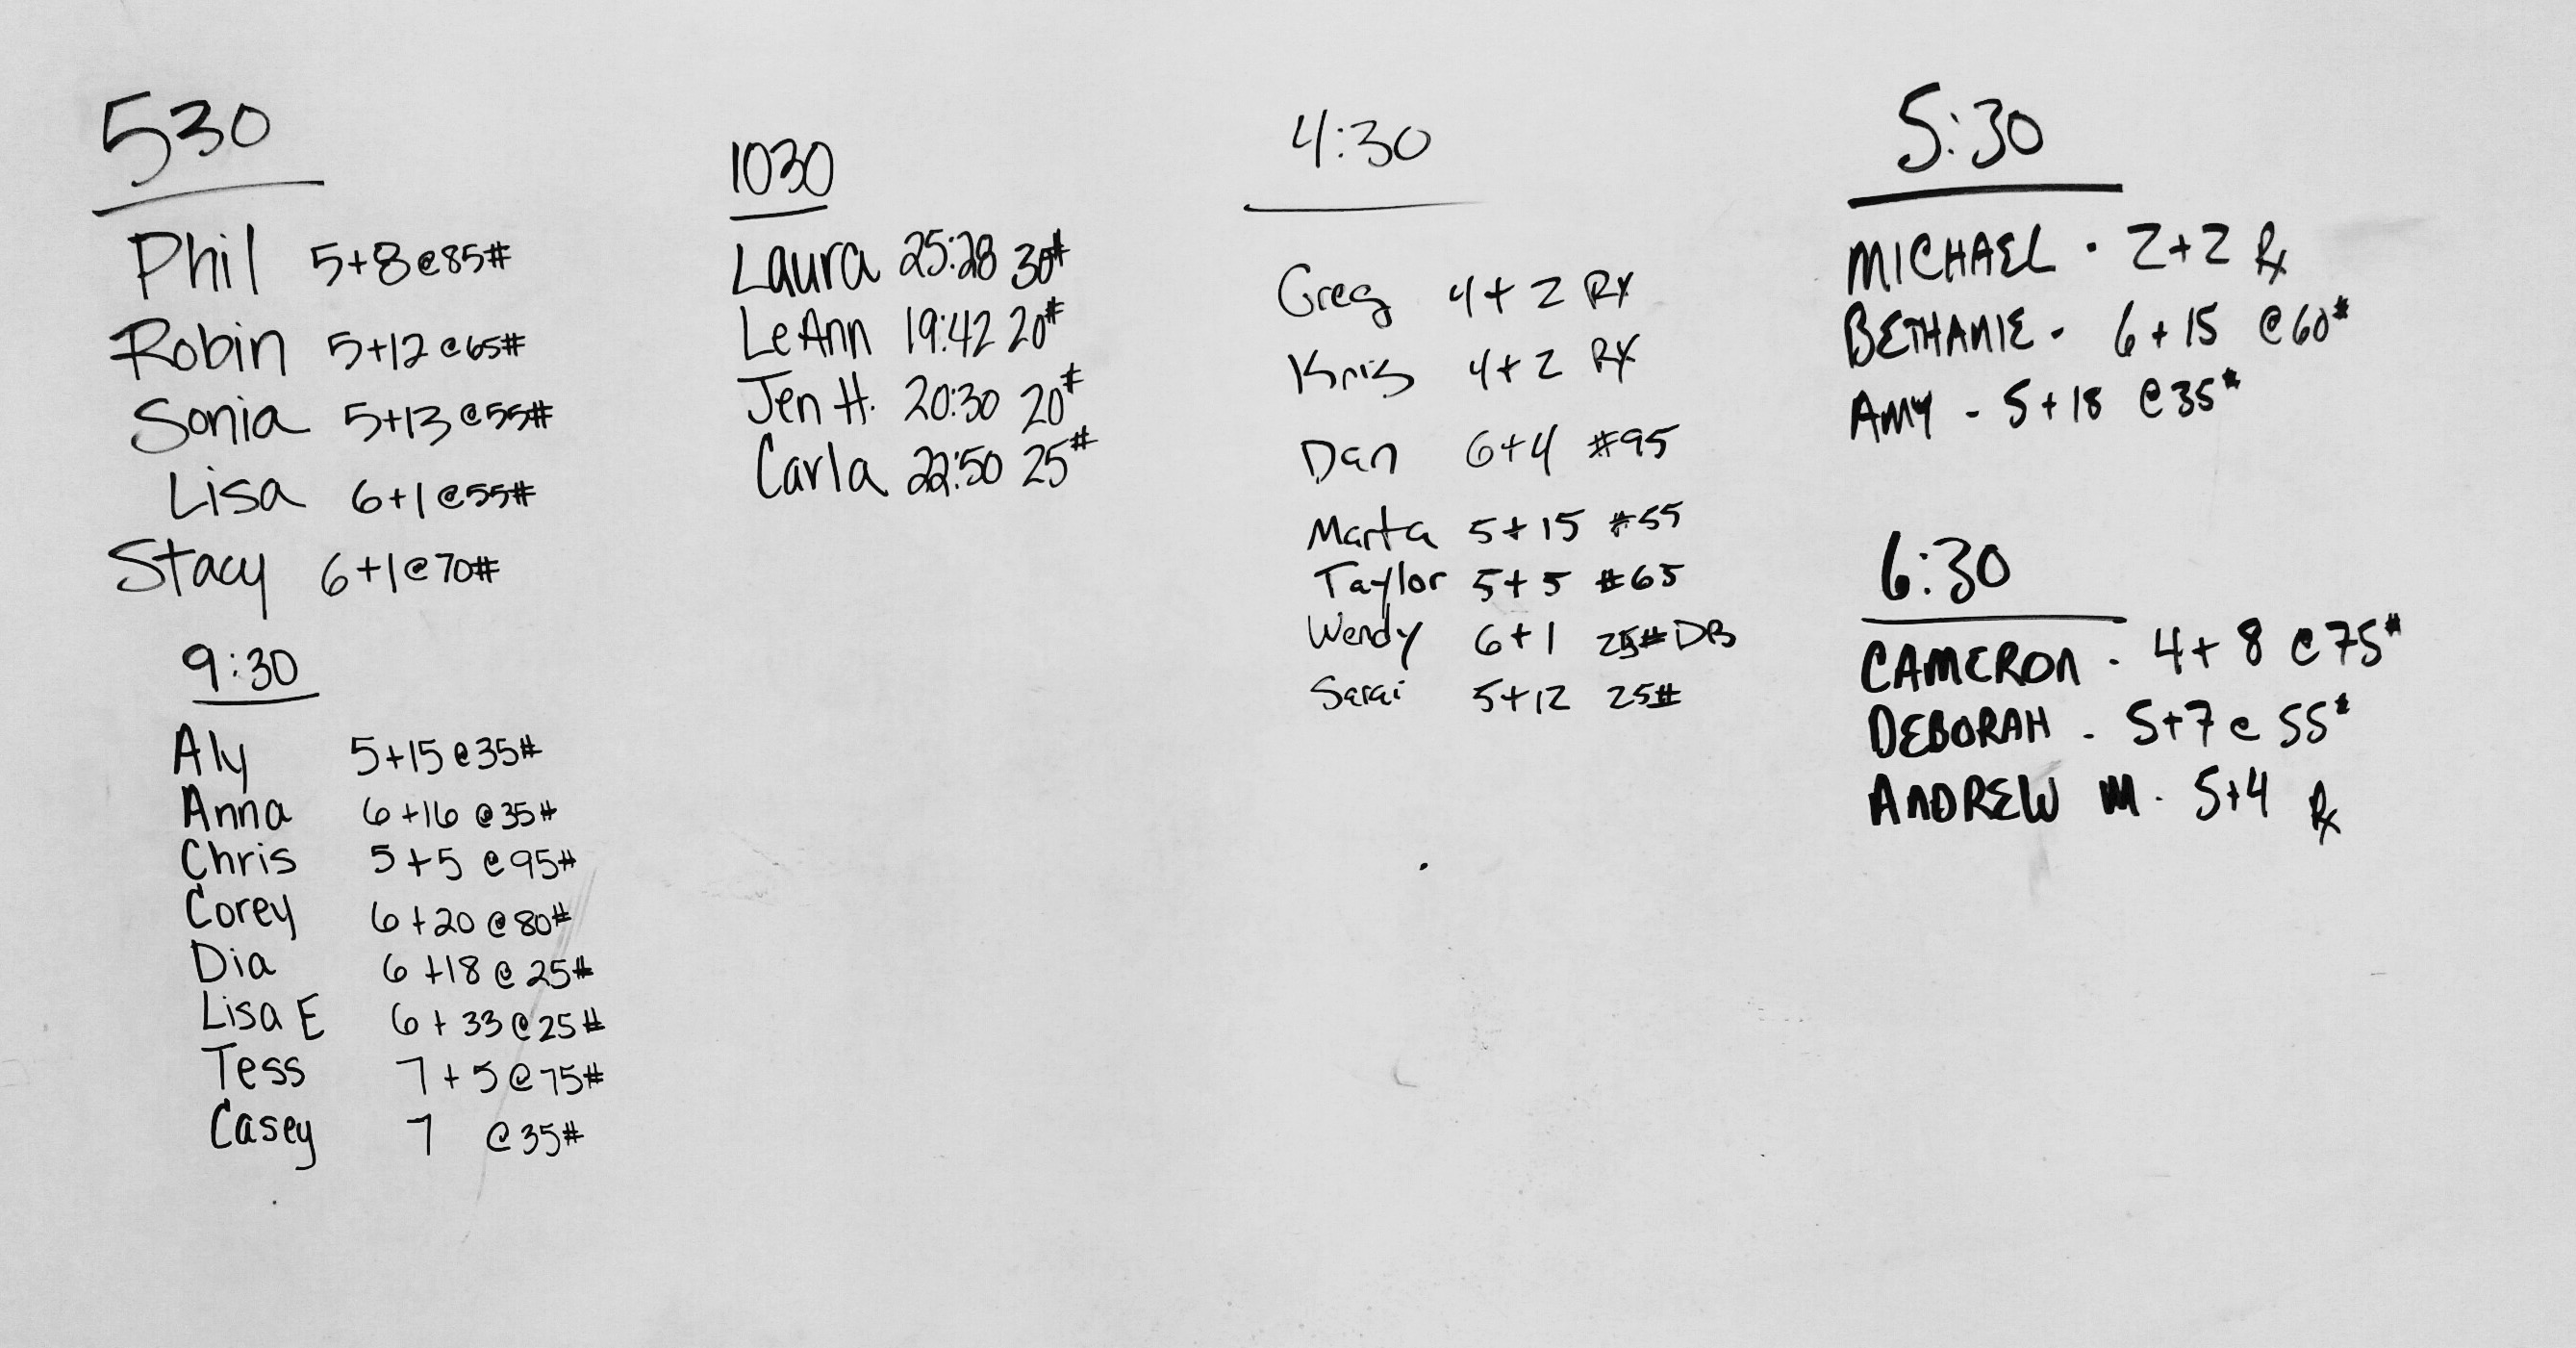 530
Phil 5+8@85#
Robin 5+12@65#
Sonia 5+13@55#
Lisa 6+1@55#
Stacy 6+1@70#
9:30
Aly 5+15@35#
Anna 6+16@35#
Chris 5+5@95#
Corey 6+20@80#
Dia 6+18@25#
Lisa E 6+33@25#
Tess 7+5@75#
Casey 7 @35#
1030
Laura 25:28 30#
LeAnn 19:42 20#
Jen H. 20:30 20#
Carla 22:50 25#
4:30
Greg 4+2 RX
Kris 4+2 RX
Dan 6+4 #95
Marta 5+15 #55
Taylor 5+5 #65
Wendy 6+1 25#DB
Sarai 5+12 25#
5:30
MICHAEL · 2+2 Rx
BETHANIE - 6+15 @60#
AMY - 5+18 @35#
6:30
CAMERON - 4+8 @75#
DEBORAH - 5+7@55#
ANDREW M - 5+4 Rx